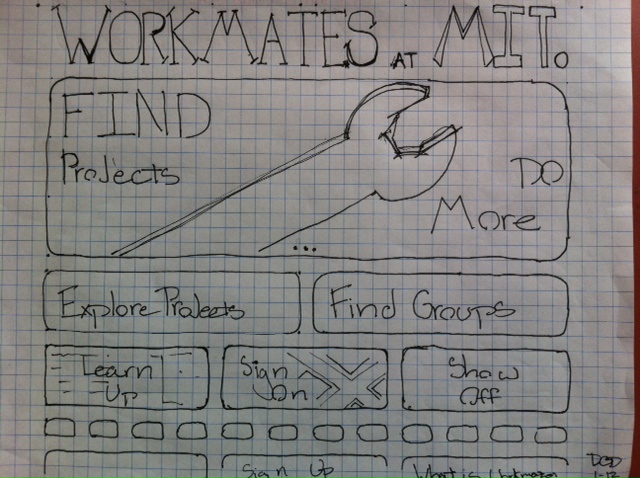 WORKMATES AT MIT
FIND
Projects
DO
More
Explore Projects
Find Groups
Learn
Up
Sign
On
Show
Off
Sign Up
What is